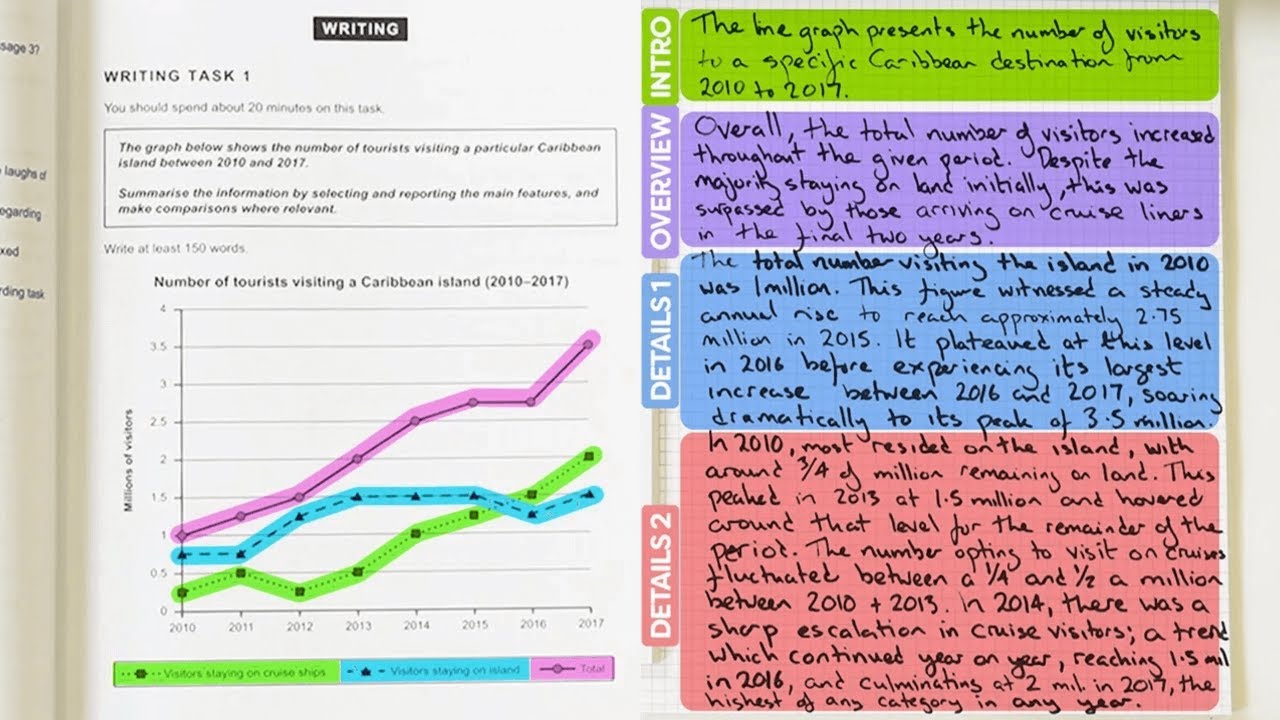 ssage 3?
laughs of
egarding
xed
rding task
WRITING
WRITING TASK 1
You should spend about 20 minutes on this task.
The graph below shows the number of tourists visiting a particular Caribbean
island between 2010 and 2017.
Summarise the information by selecting and reporting the main features, and
make comparisons where relevant.
Write at least 150 words.
Number of tourists visiting a Caribbean island (2010–2017)
Millions of visitors
4
3.5
3
2.5
2
1.5
1
0.5
0
2010 2011 2012 2013 2014 2015 2016 2017
Visitors staying on cruise ships Visitors staying on island Total
INTRO
The line graph presents the number of visitors
to a specific Caribbean destination from
2010 to 2017.
OVERVIEW
Overall, the total number of visitors increased
throughout the given period. Despite the
majority staying on land initially, this was
surpassed by those arriving on cruise liners
in the final two years.
DETAILS 1
The total number visiting the island in 2010
was 1million. This figure witnessed a steady
annual rise to reach approximately 2.75
million in 2015. It plateaued at this level
in 2016 before experiencing its largest
increase between 2016 and 2017, soaring
dramatically to its peak of 3.5 million.
DETAILS 2
In 2010, most resided on the island, with
around 3/4 of million remaining on land. This
peaked in 2013 at 1.5 million and hovered
around that level for the remainder of the
period. The number opting to visit on cruises
fluctuated between a 1/4 and 1/2 a million
between 2010 + 2013. In 2014, there was a
sharp escalation in cruise visitors; a trend
which continued year on year, reaching 1.5 mil
in 2016, and culminating at 2 mil. in 2017, the
highest of any category in any year.